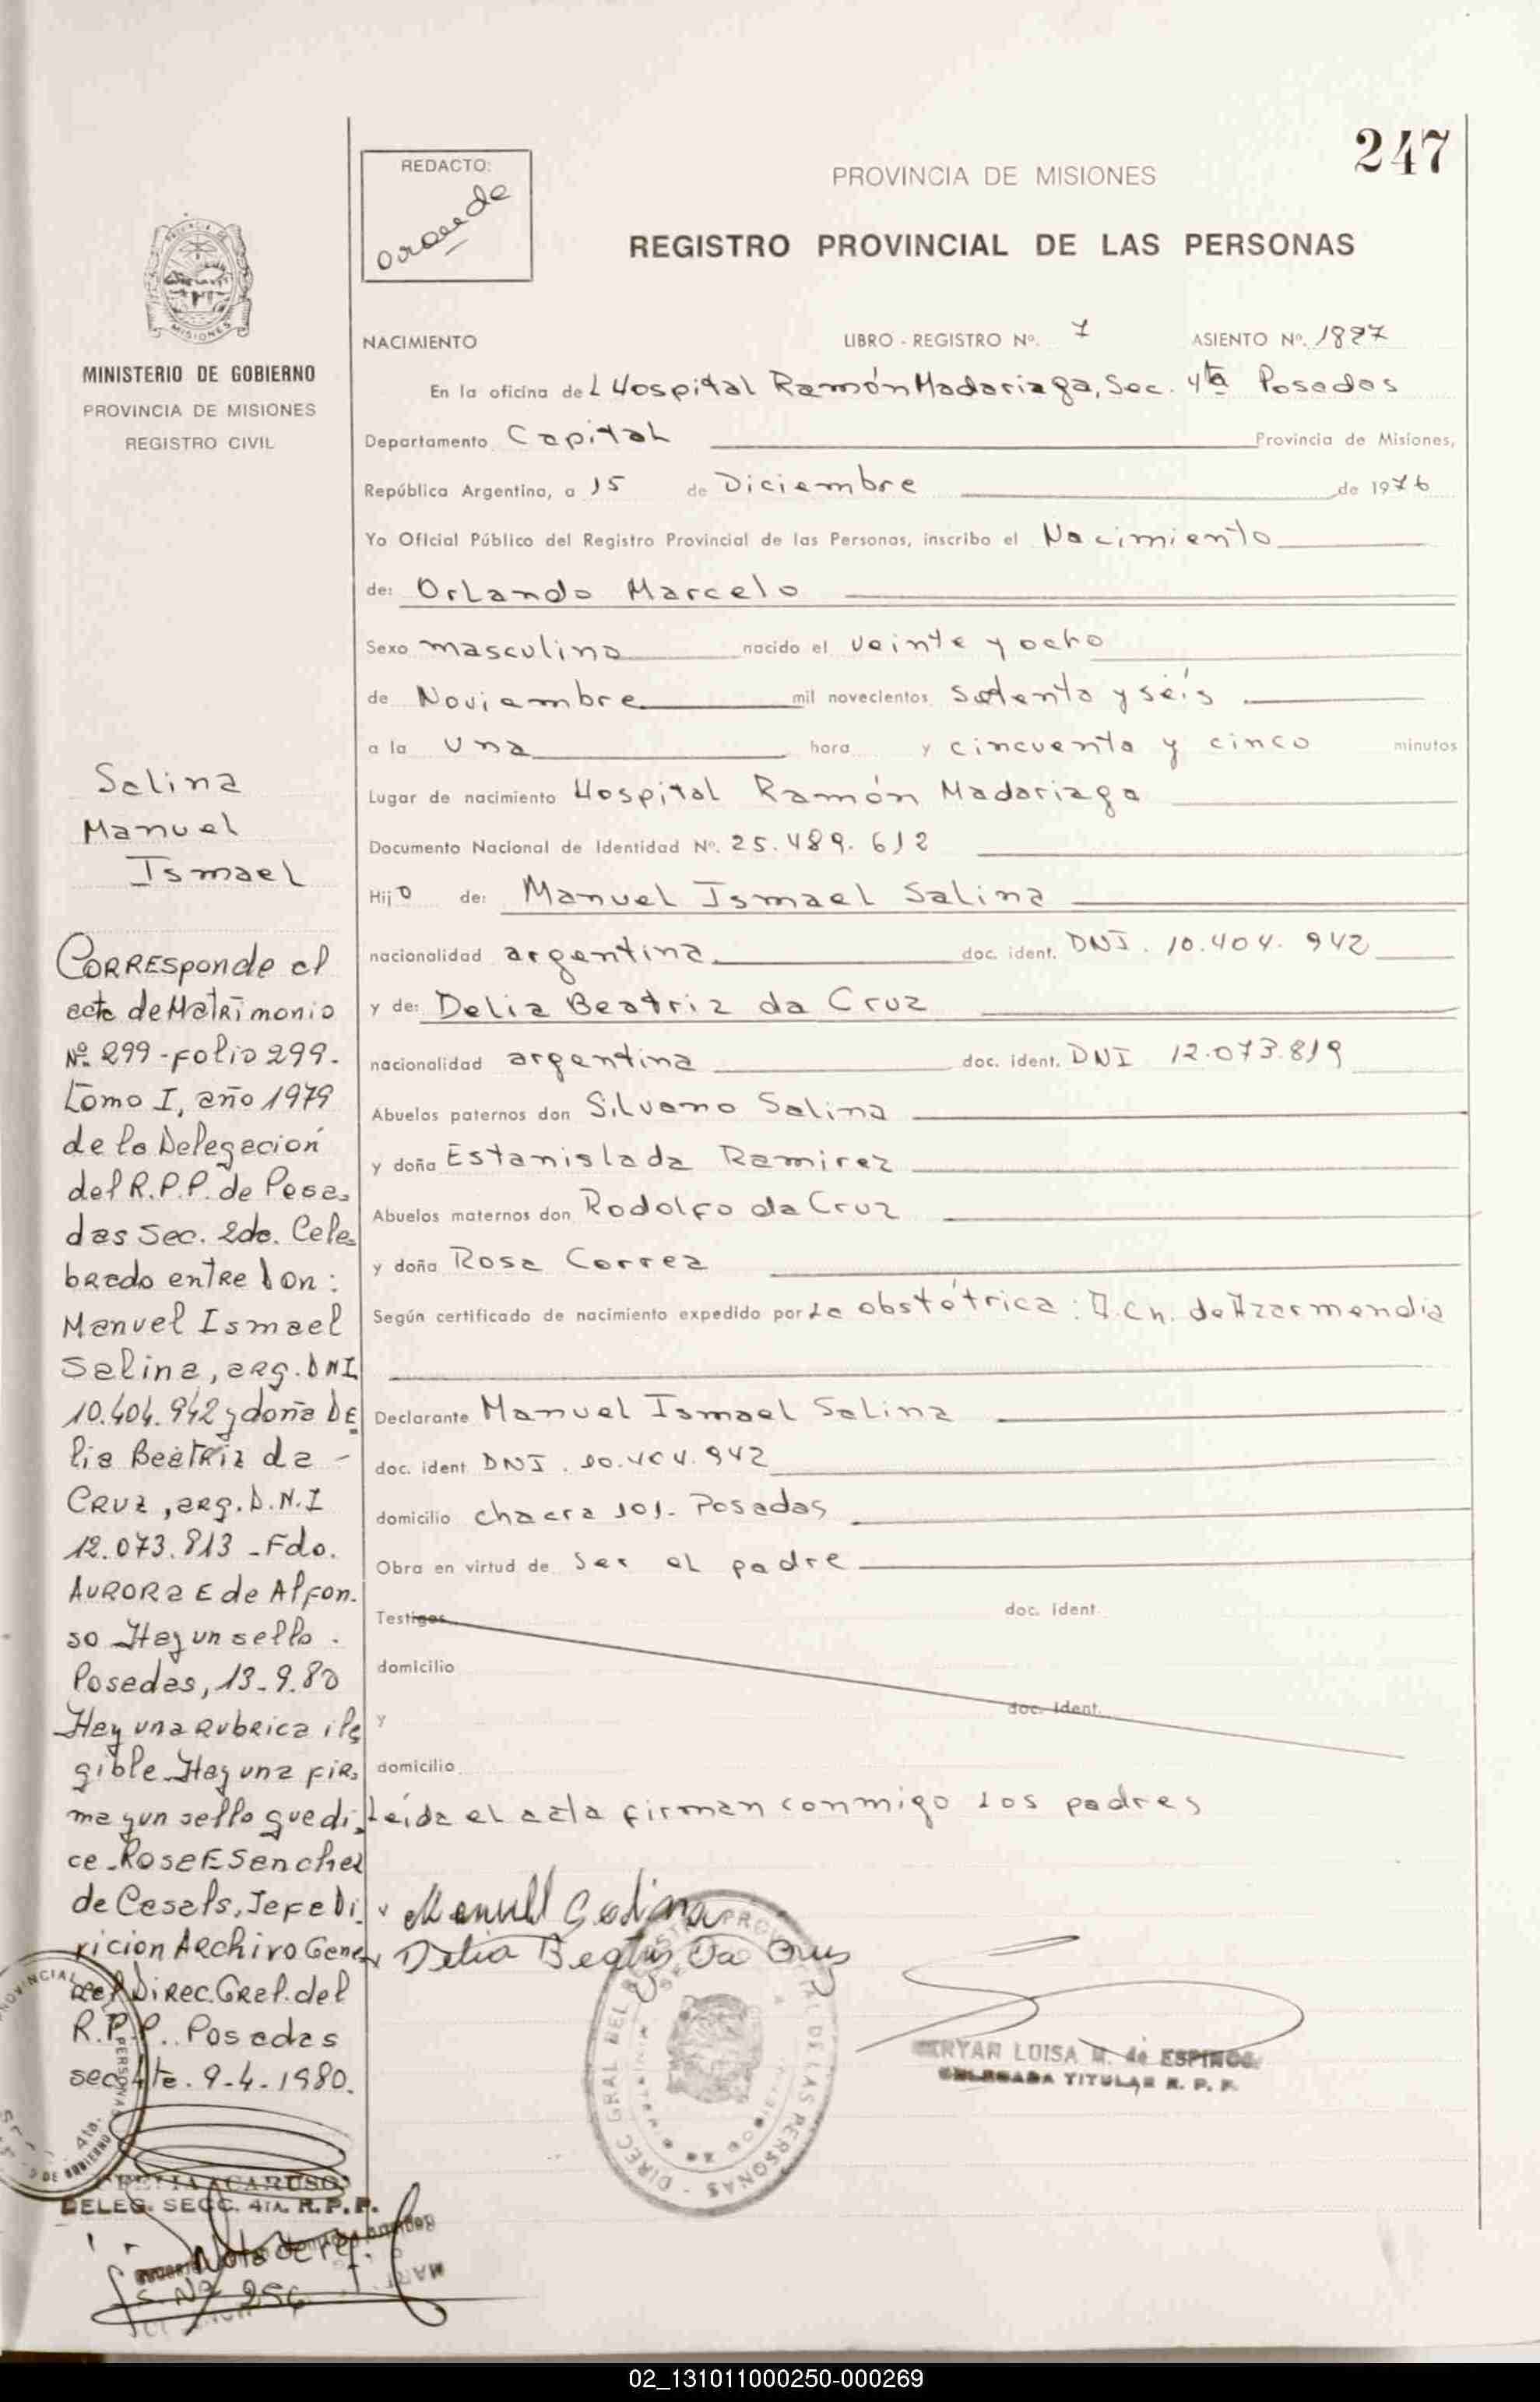 247
REDACTO:
PROVINCIA DE MISIONES
REGISTRO PROVINCIAL DE LAS PERSONAS
MISIONES
MINISTERIO DE GOBIERNO
PROVINCIA DE MISIONES
REGISTRO CIVIL
NACIMIENTO LIBRO - REGISTRO Nº. 7 ASIENTO Nº. 1827
En la oficina del Hospital Ramón Madariaga, Sec. 4ta Posadas
Departamento Capital Provincia de Misiones,
República Argentina, a 15 de Diciembre de 1976
Yo Oficial Público del Registro Provincial de las Personas, inscribo el Nacimiento
de: Orlando Marcelo
Sexo masculino nacido el veinte y ocho
de Noviembre mil novecientos setenta y seis
a la una hora y cincuenta y cinco minutos
Lugar de nacimiento Hospital Ramón Madariaga
Documento Nacional de Identidad Nº. 25.489.612
Hijo de: Manuel Ismael Salina
nacionalidad argentina doc. ident. DNI. 10.404.942
y de: Delia Beatriz da Cruz
nacionalidad argentina doc. ident. DNI 12.073.819
Abuelos paternos don Silvano Salina
y doña Estanislada Ramirez
Abuelos maternos don Rodolfo da Cruz
y doña Rosa Correa
Según certificado de nacimiento expedido por La obstétrica: A. Ch. de Azarmendia
Declarante Manuel Ismael Salina
doc. ident DNI. 10.404.942
domicilio chacra 101- Posadas
Obra en virtud de ser el padre
Testigos doc. ident.
domicilio
y doc. ident.
domicilio
Leida el acta firman conmigo los padres
Manuel Salina
Delia Beatriz Da Cruz
LUISA M. de ESPINOSA
DELEGADA TITULAR R. P. P.
DIREC. GRAL DEL REGISTRO PROVINCIAL DE LAS PERSONAS
Salina
Manuel
Ismael
Corresponde al
acta de Matrimonio
Nº 299-folio 299.
Tomo I, año 1979
de la Delegación
del R.P.P. de Posa-
das Sec. 2da. Cele-
brado entre Don:
Manuel Ismael
Salina, arg. DNI
10.404.942 y doña De
lia Beatriz da -
Cruz, arg. D.N.I
12.073.813 - Fdo.
Aurora E de Alfon-
so Hay un sello.
Posadas, 13-9.80
Hay una rubrica ile
gible. Hay una fir-
ma y un sello que di-
ce. Rosa E Sanchez
de Casals, Jefe Di-
vicion Archivo Gene
ral Direc. Gral. del
R.P.P. Posadas
sec 4ta. 9-4-1980.
CARUSO
DELEG. SECC. 4TA. R.P.P.
Nota de ref.
S. Nº 256
02_131011000250-000269